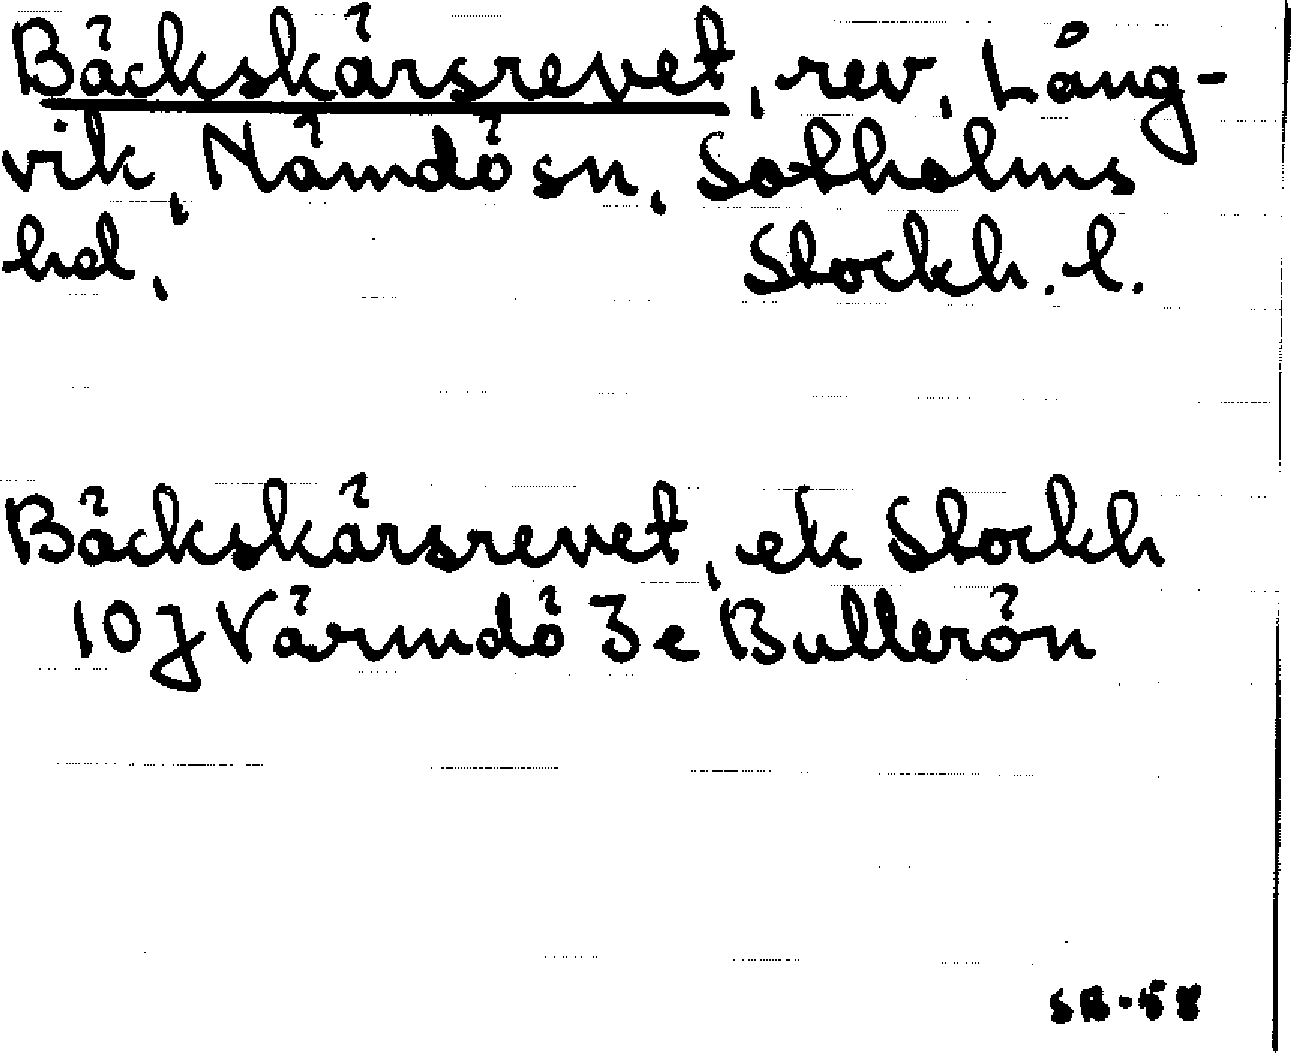 Bäckskärsrevet, rev, Lång-
vik, Nämdö sn, Sotholms
hd, Stockh. l.
Bäckskärsrevet, ek Stockh
10J Värmdö 3e Bullerön
SB-58